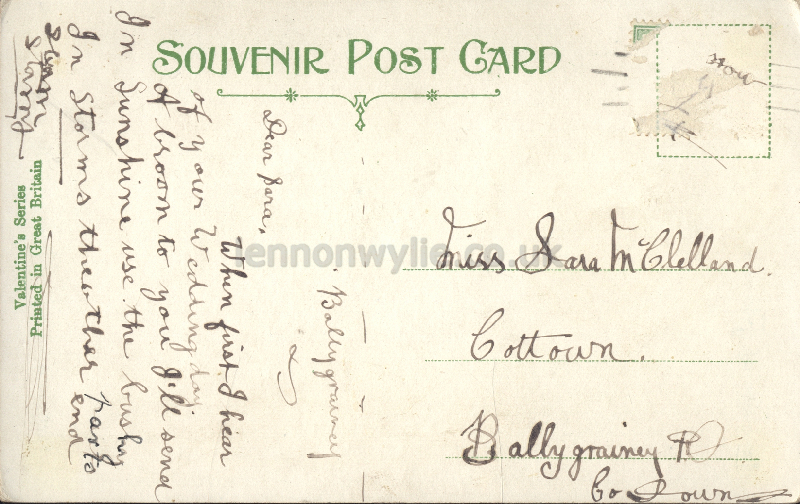 SOUVENIR POST CARD
now
Ballygrainey
Dear Sara,
When first I hear
of your Wedding day
A broom to you I'll send
In Sunshine use the bushy
parts
In Storms the other end
Valentine's Series
Printed in Great Britain
Miss Sara McClelland.
Cottown.
Ballygrainey
Co Down
lennonwylie.co.uk